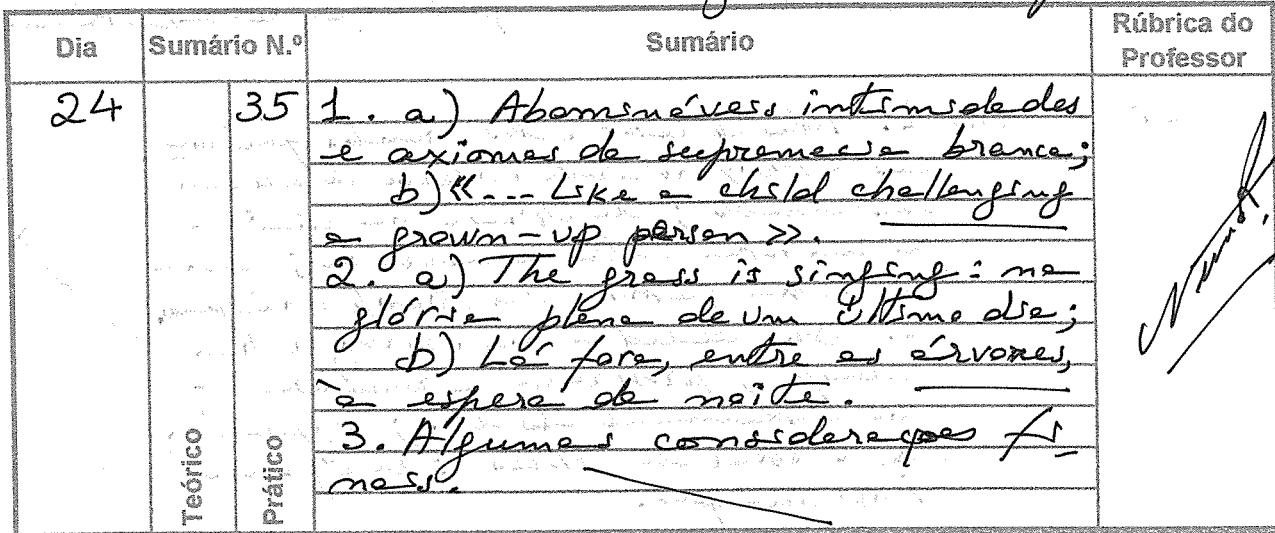 Dia Sumário N.º Sumário Rúbrica do Professor
24 35 1. a) Abomináveis intimidades
e axiomas da supremacia branca;
b) «... Like a child challenging
a grown-up person».
2. a) The grass is singing: na
glória plena de um último dia;
b) Lá fora, entre as árvores,
à espera da noite.
3. Algumas considerações fi
nais.
Teórico Prático